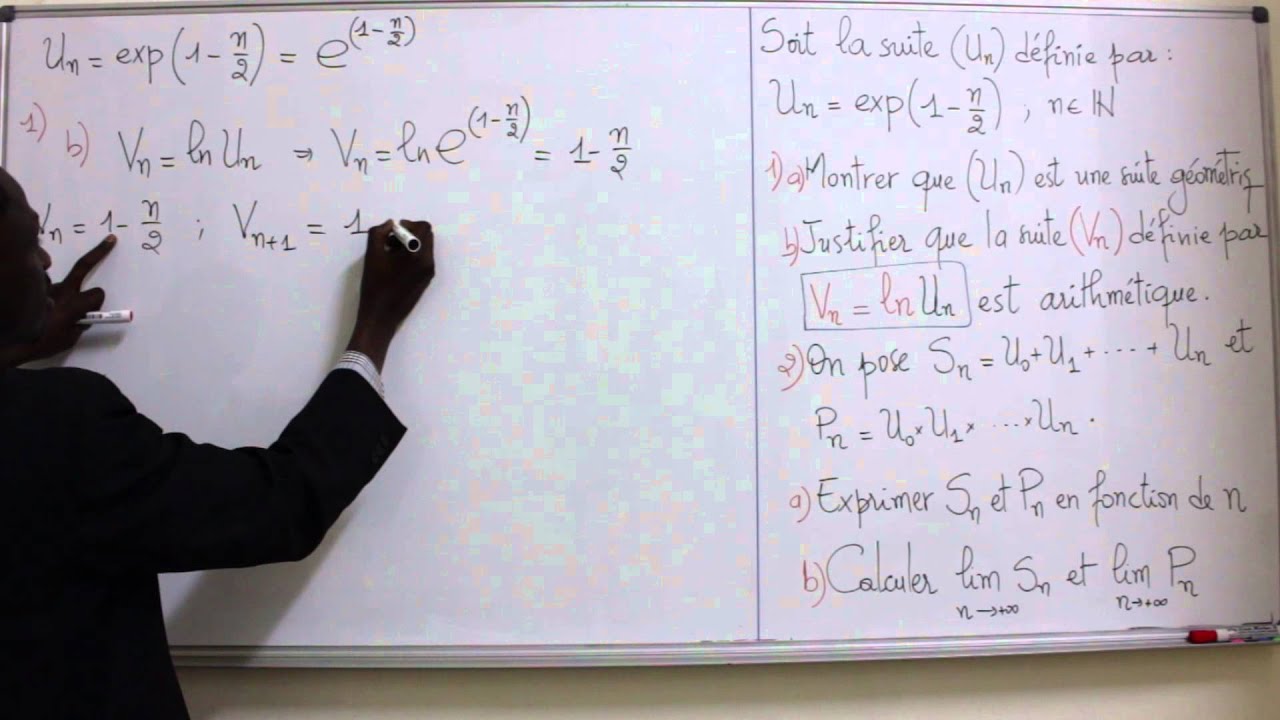 Un = exp(1 - n/2) = e^(1 - n/2)
1) b) Vn = ln Un ⇒ Vn = ln e^(1 - n/2) = 1 - n/2
Vn = 1 - n/2 ; Vn+1 = 1
Soit la suite (Un) définie par :
Un = exp(1 - n/2) , n ∈ ℕ
1) a) Montrer que (Un) est une suite géométriq
b) Justifier que la suite (Vn) définie par
Vn = ln Un est arithmétique.
2) On pose Sn = U0 + U1 + ... + Un et
Pn = U0 × U1 × ... × Un .
a) Exprimer Sn et Pn en fonction de n
b) Calculer lim n→+∞ Sn et lim n→+∞ Pn